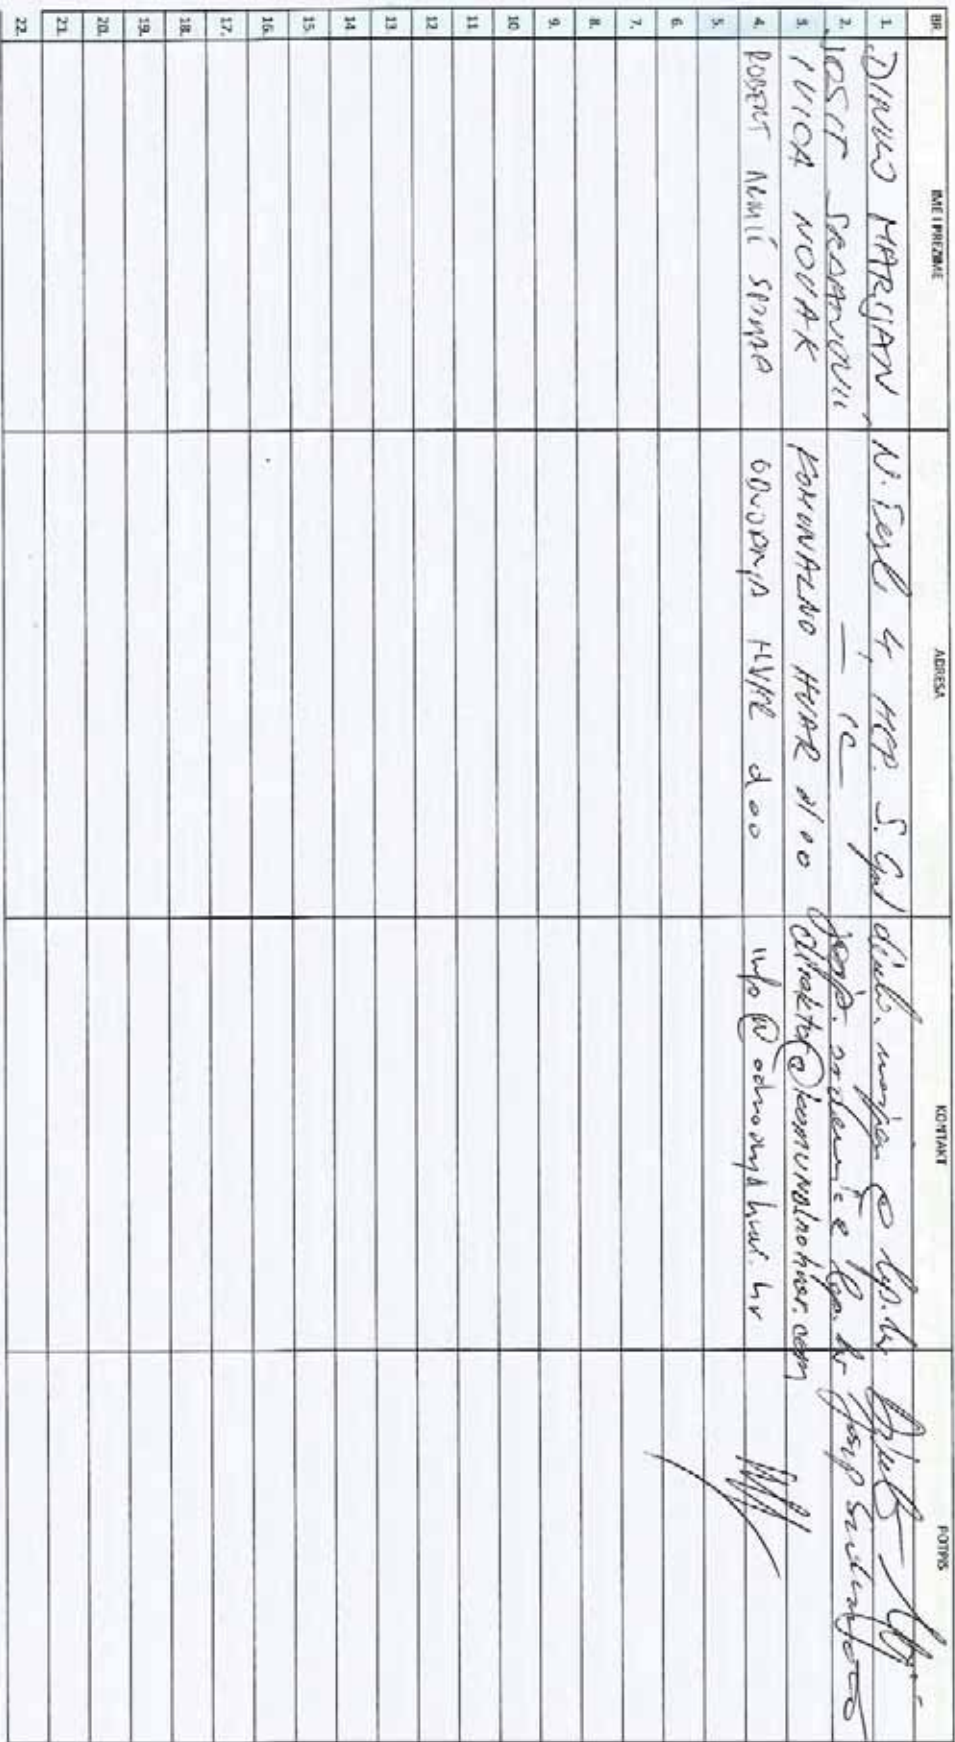 BR. IME I PREZIME ADRESA KONTAKT POTPIS
1. DINKO MARIJAN N. Tesle 4 HEP. S. Grad @ hep.hr
2. JOSIP — 11 — josip. hep.hr
3. IVICA NOVAK KOMUNALNO HVAR d.o.o direktor@komunalnohvar.com
4. ROBERT ODVODNJA HVAR d o o info@odvodnjahvar.hr
5.
6.
7.
8.
9.
10.
11.
12.
13.
14.
15.
16.
17.
18.
19.
20.
21.
22.